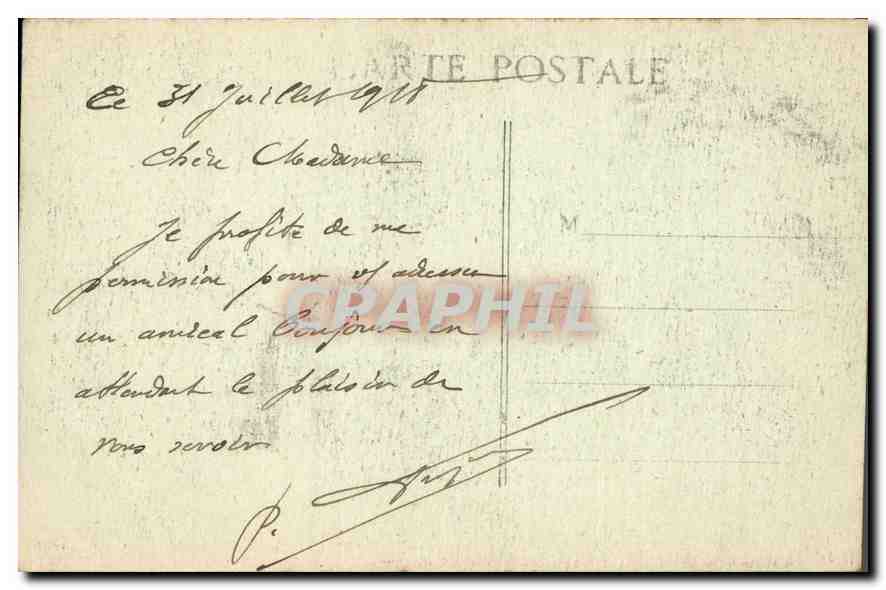 CARTE POSTALE
Le 31 Juillet 1918
Chère Madame
Je profite de me
permission pour vs adresser
un amical bonjour en
attendant le plaisir de
vous revoir
P.
M
CPAPHIL